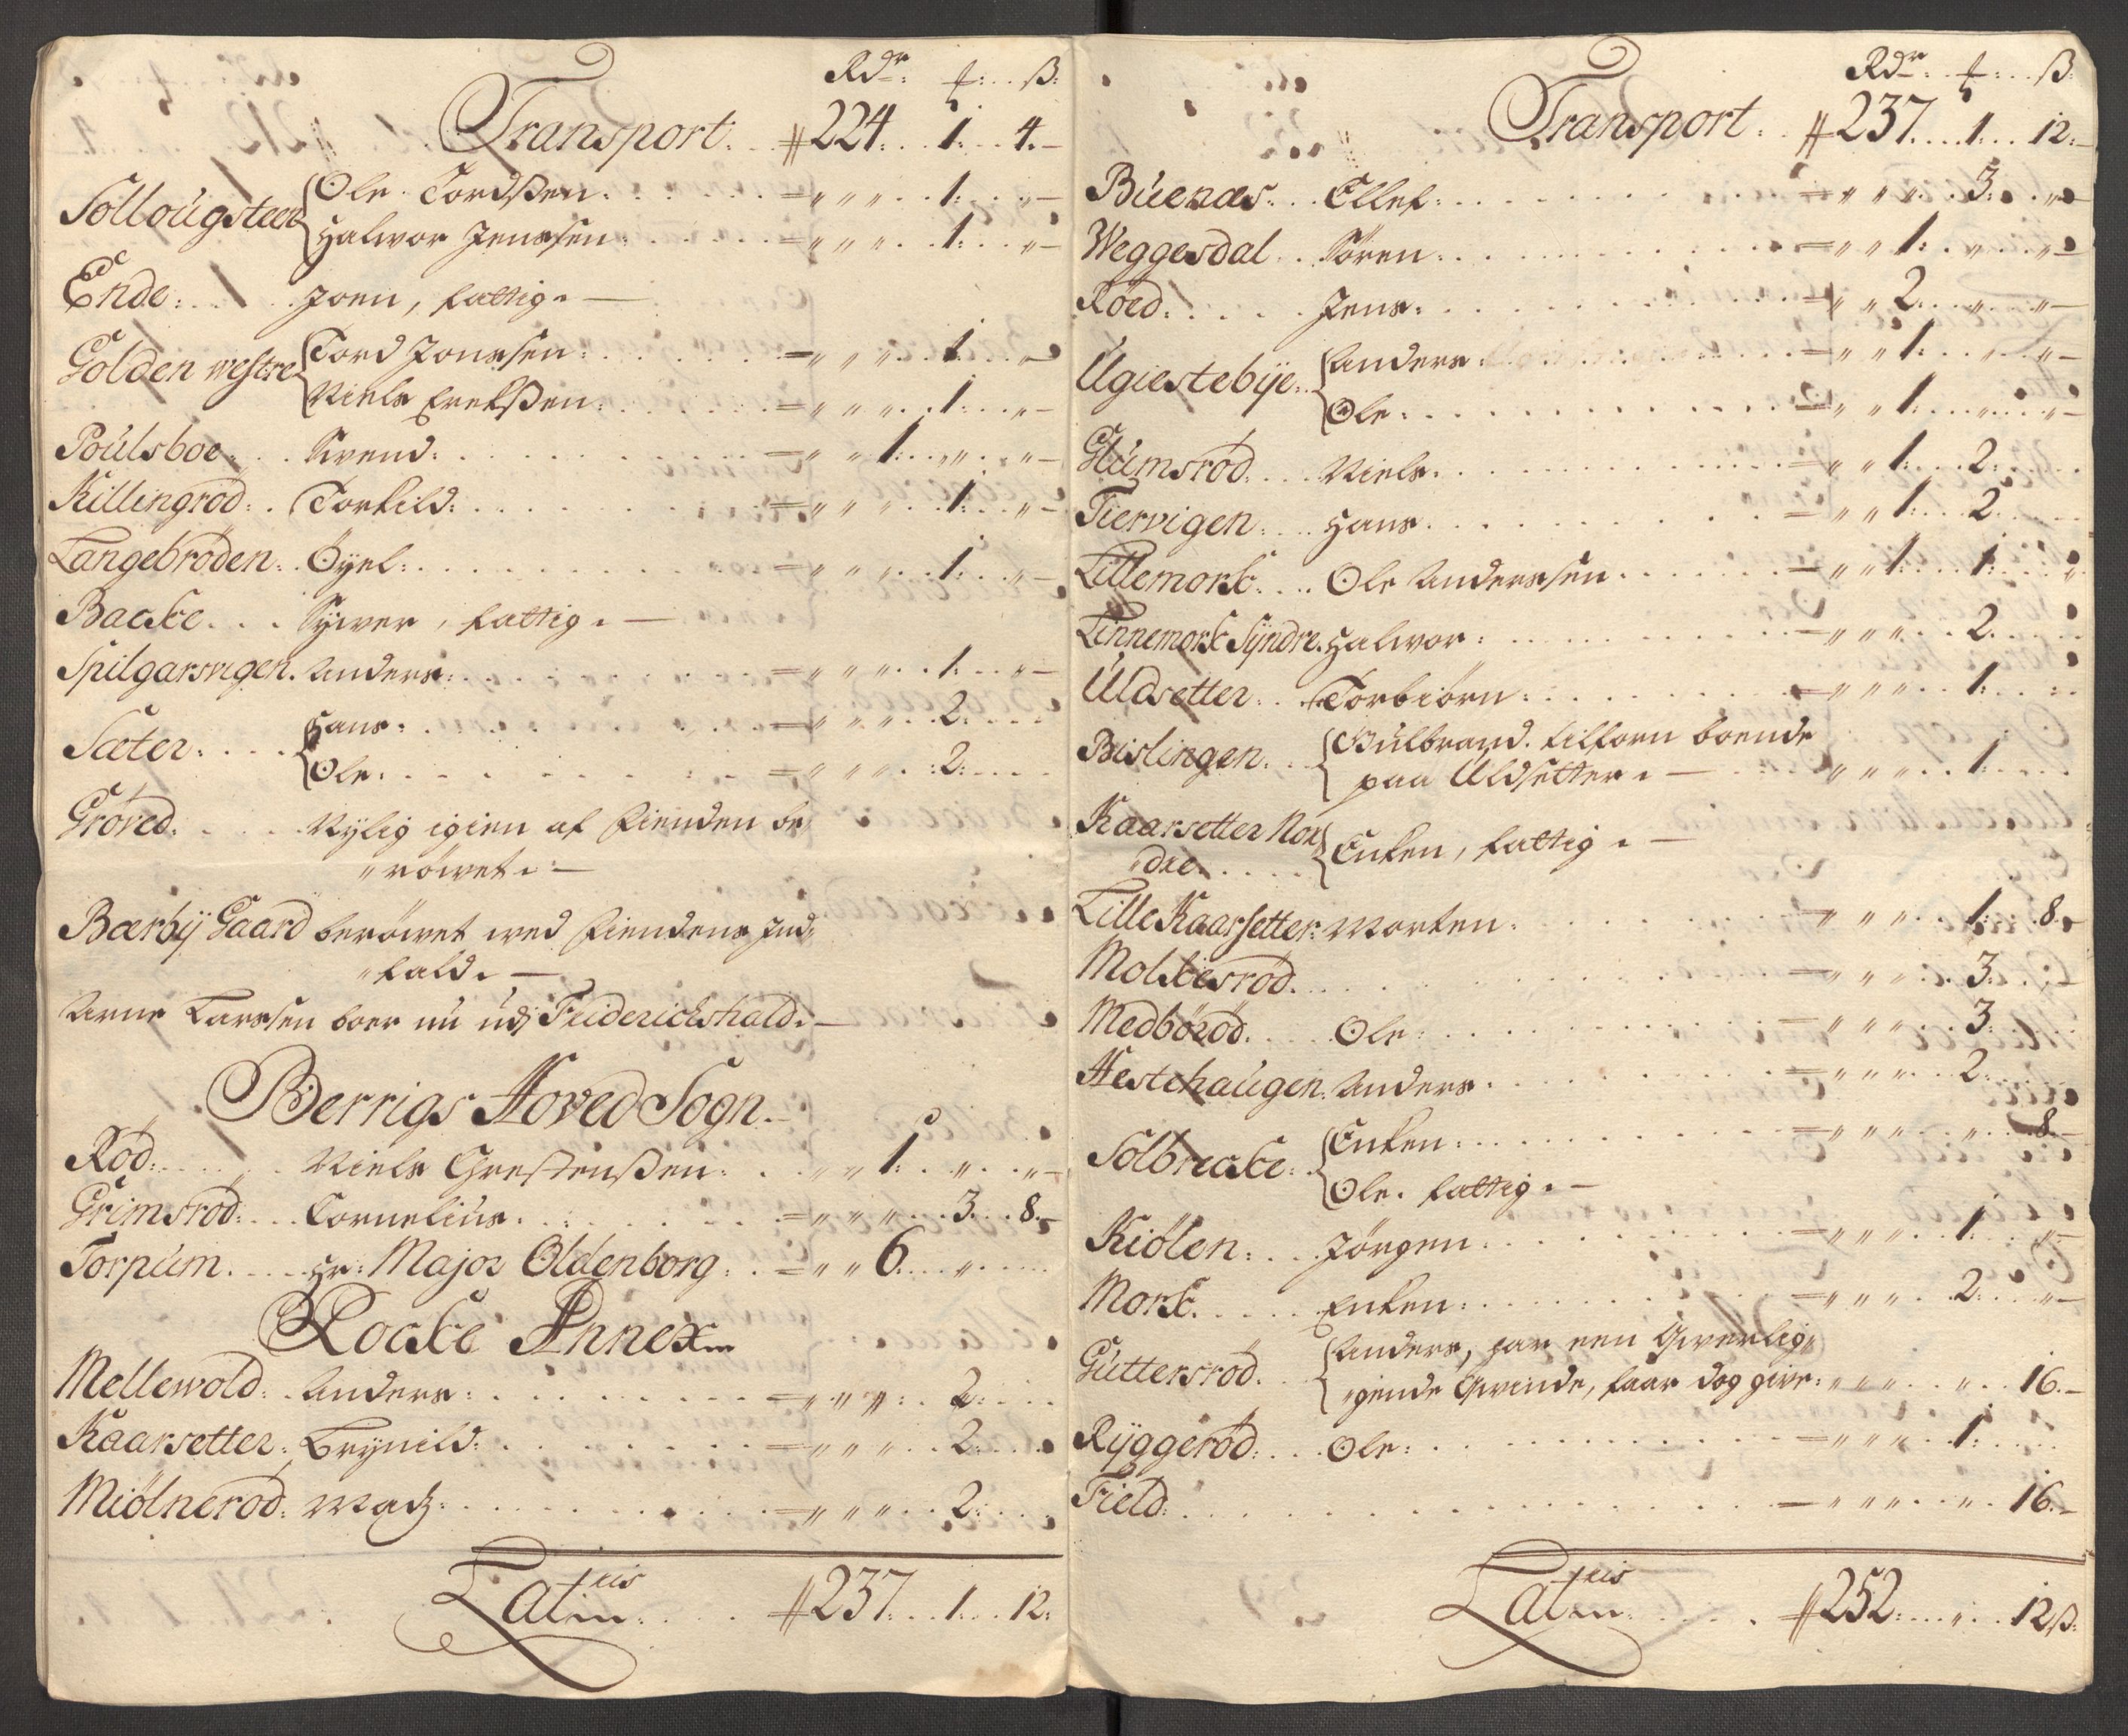 Rdr: ƒ: ß:
Transport. 224. 1. 4.
Sollougsteen Ole Tordßen. „ „ 1. „
Halvor Jenssen. „ „ 1. „
Ende. Joen, fattig.
Golden westre Tord Jonssen. „ „ 1. „
Niels Erekßen. „ „ 1. „
Poulsboe. Svend. „ 1. „ „
Killingrød. Torkild. „ „ 1. „
Langebrøden. Öyel. „ „ 1. „
Backe. Syver, fattig.
Spilgarsvigen. Anders. „ „ 1. „
Sæter. Hans. „ „ 2.
Ole. „ „ 2.
Grøved. Nylig igien af Fienden be
„røvet.
Bærby Gaard berøvet ved Fiendens Ind„
„fald.
Arne Larssen boer nu udj Friderichshald.
Berrigs Hoved Sogn.
Rød. Niels Grestenßen. „ 1. „ „
Grimsrød. Cornelius. „ „ 3. 8.
Torpum. Hr: Major Oldenborg. „ 6. „
Rocke Annex
Mellewold. Anders. „ „ 2.
Kaarsetter. Brynild. „ „ 2.
Miølnerød. Madz. „ „ 2.
Latris 237. 1. 12.
Rdr: ƒ: ß:
Transport. 237. 1. 12.
Buenæs. Ellef. „ „ 3. „
Weggesdal. Søren. „ 1. „ „
Røed. Jens. „ 2. „ „
Ugiestebye. Anders. „ 1. „ „
Ole. „ 1. „ „
Glumsrød. Niels. „ 1. 2.
Tiervigen. Hans. „ 1. 2.
Lillemork. Ole Anderssen. „ 1. 1. „
Linnemork Syndre. Halvor. „ „ 2.
Uldsetter. Torbiørn. „ „ 1.
Bislingen. Gulbrand. tilforn boende
paa Uldsetter. „ „ 1.
Kaarsetter Nor
„dre. Enken, fattig.
Lille Kaarsetter. Morten. „ „ 1. 8.
Molkesrød. „ „ 3.
Medbørød. Ole. „ „ 3.
Hestehaugen. Anders. „ „ 2.
Solbrecke. Enken. „ „ „ 8.
Ole. fattig.
Kiølen. Jørgen. „ „ 1. „
Mork. Enken. „ „ 2. „
Guttersrød. Anders, har een Qverlig„
„gende Qvinde, faar dog give. „ „ „ 16.
Ryggerød. Ole. „ „ 1.
Field. „ „ „ 16.
Latris 252. „ 12ß.